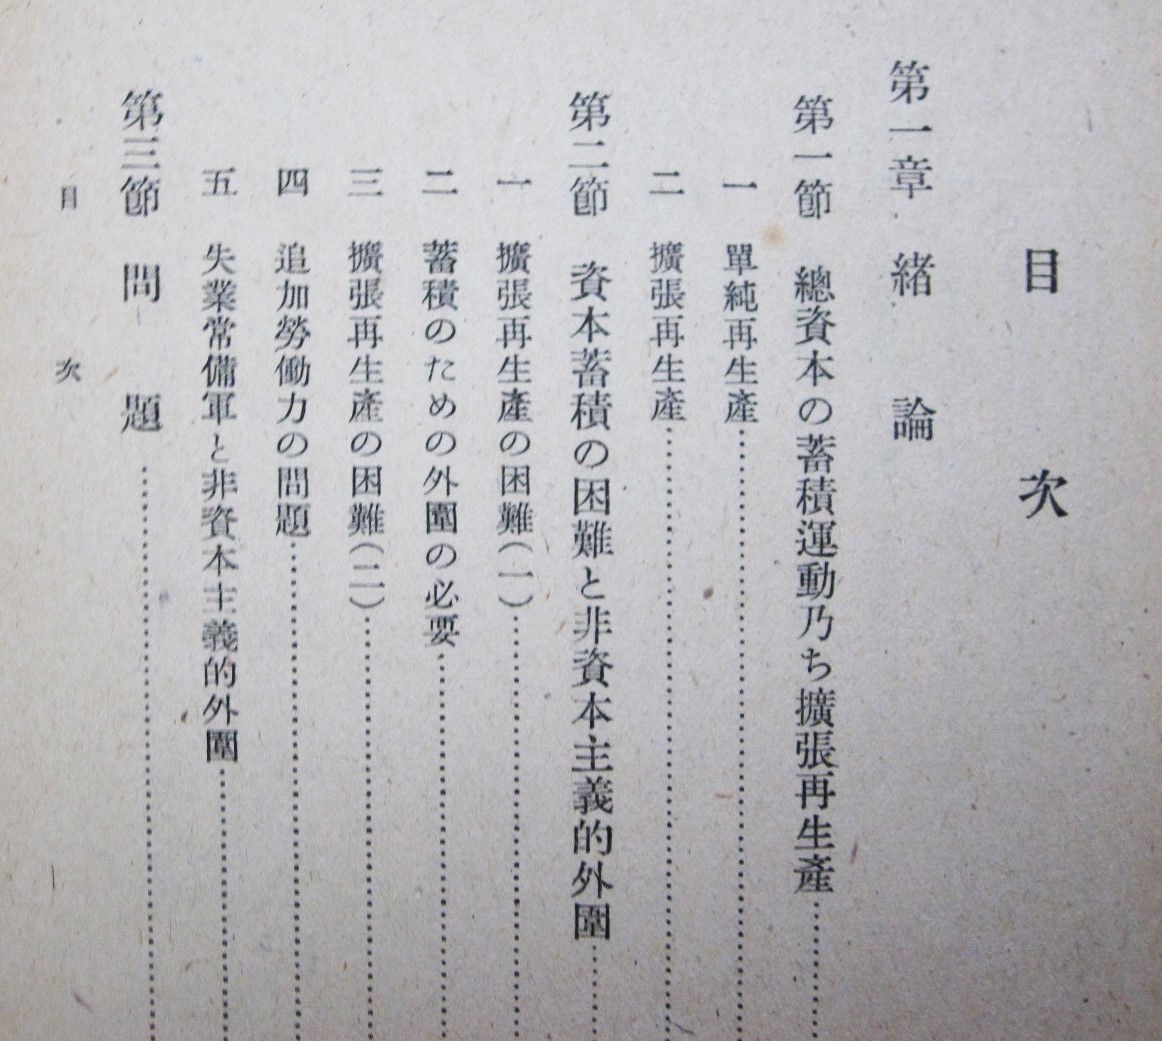 目次
第一章 緒論
第一節 總資本の蓄積運動乃ち擴張再生產
一 單純再生產
二 擴張再生產
第二節 資本蓄積の困難と非資本主義的外圍
一 擴張再生產の困難(一)
二 蓄積のための外圍の必要
三 擴張再生產の困難(二)
四 追加勞働力の問題
五 失業常備軍と非資本主義的外圍
第三節 問題
目次